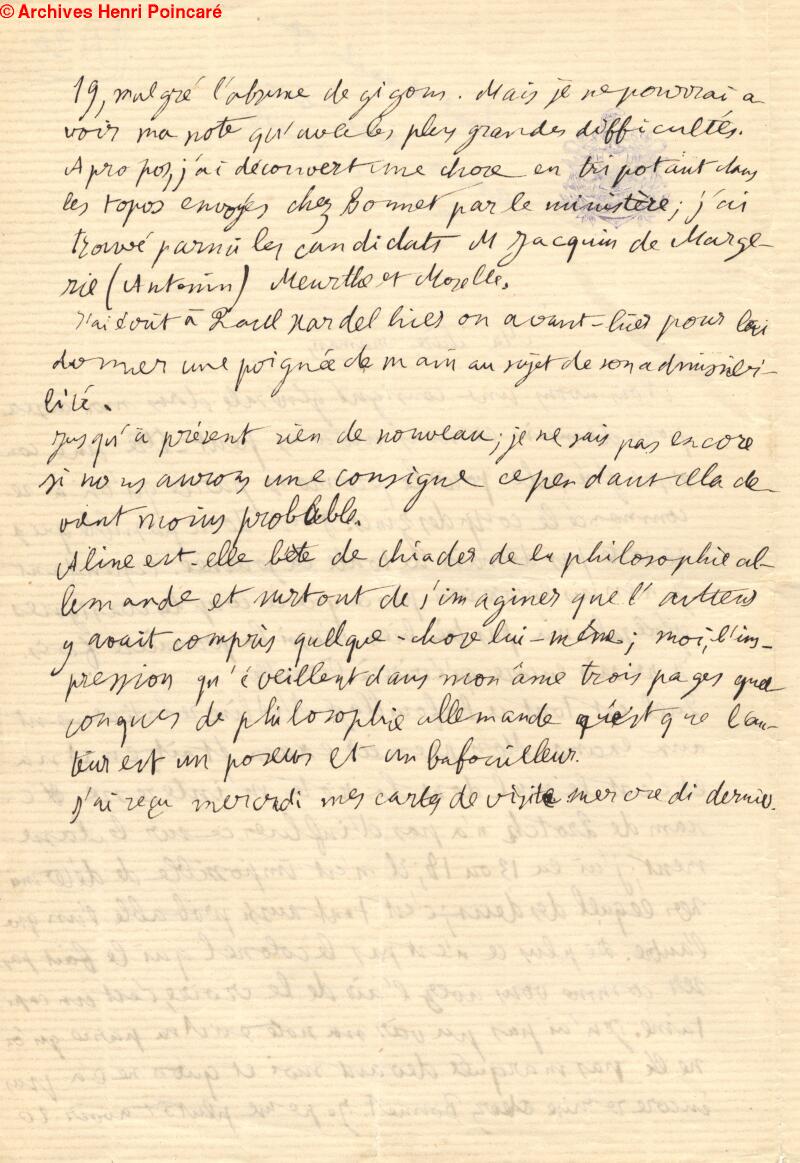 © Archives Henri Poincaré
19, malgré l'abyme de gigons. Mais je ne pourrai a
voir ma note qu'avec les plus grandes difficultés.
A propos, j'ai découvert une chose en tripotant dans
les topos envoyés chez Bonnet par le ministère; j'ai
trouvé parmi les candidats M Jacquin de Marge-
rie (Antonin) Meurthe et Moselle.
J'ai écrit à Raoul Hardel hier ou avant-hier pour lui
donner une poignée de main au sujet de son admissibi-
lité.
Jusqu'à présent rien de nouveau; je ne sais pas encore
si nous aurons une consigne cependant cela de-
vient moins probable.
Aline est-elle bête de chiader de la philosophie al-
lemande et surtout de s'imaginer que l'auteur
y avait compris quelque-chose lui-même; moi, l'im-
pression qu'éveillent dans mon âme trois pages quel
conques de philosophie allemande c'est que l'au-
teur est un poseur et un bafouilleur.
J'ai reçu mercredi mes cartes de visite mercredi dernier.